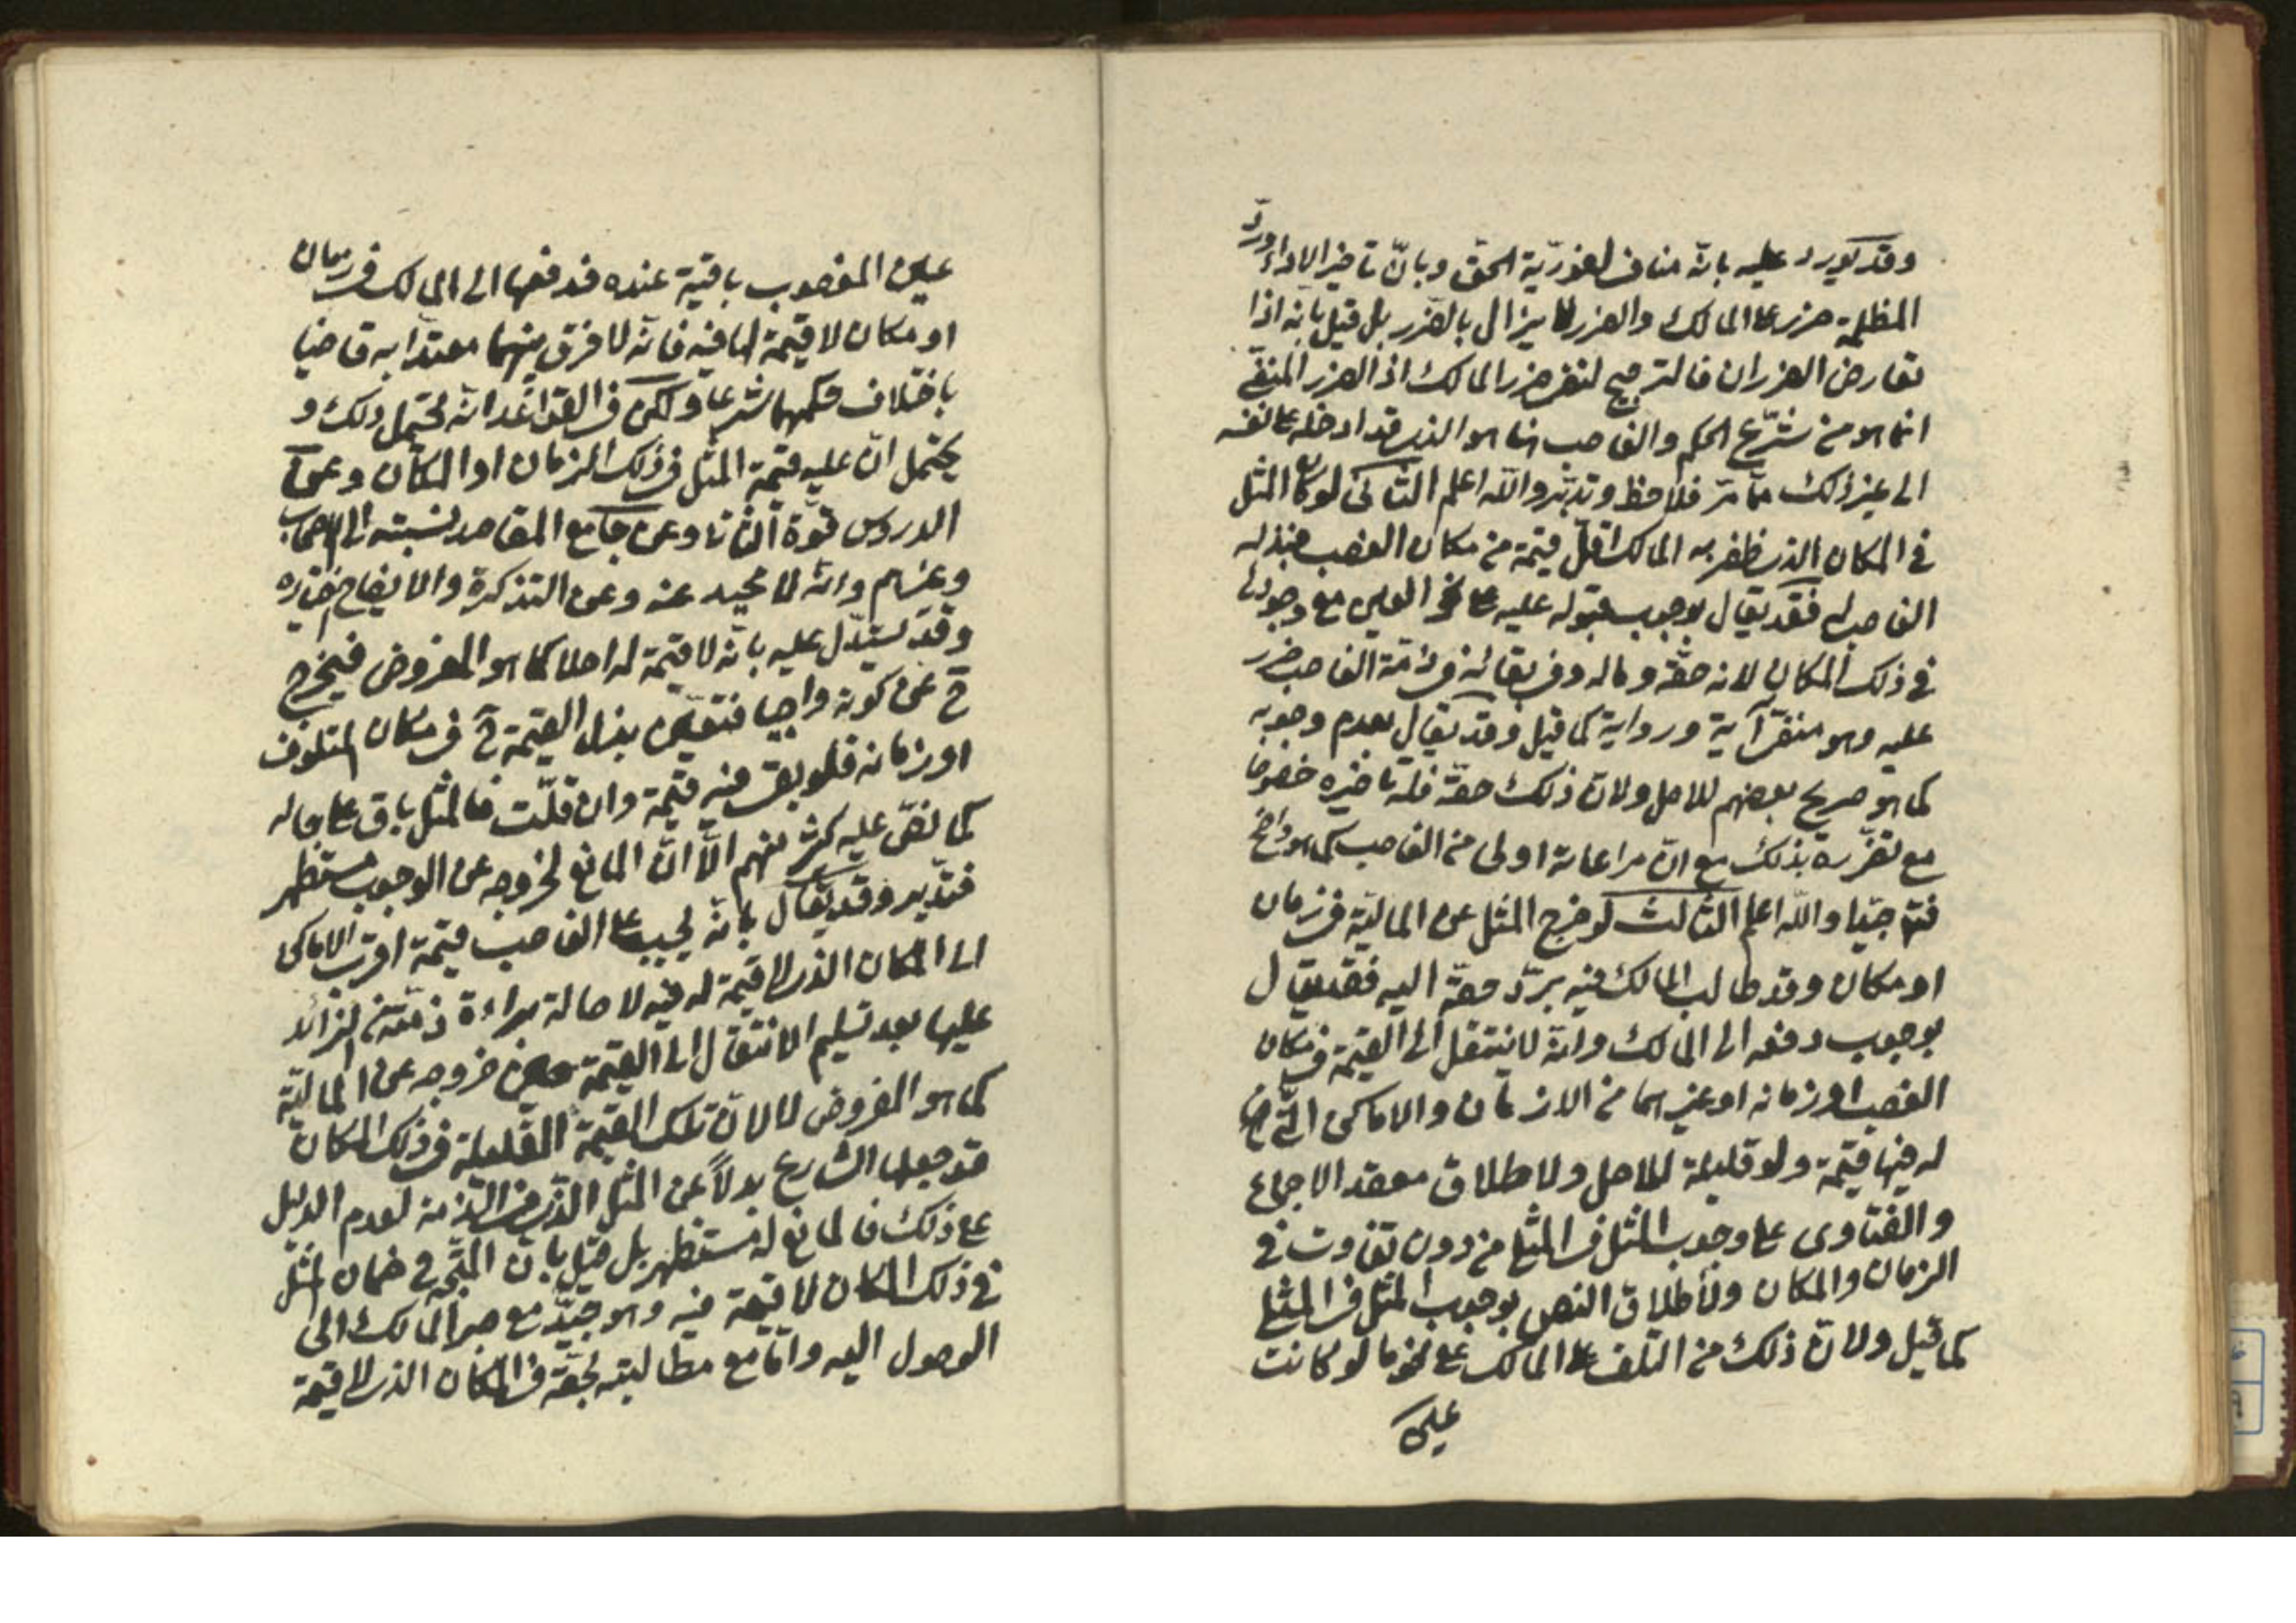 وقد يورد عليه بانّه مناف لفوريّة الحقّ وبانّ تاخير الاداء وردّ
المظلمة ضرر على المالك والضرر لا يزال بالضّرر بل قيل بانه اذا
تعارض الضرران فالترجيح لنفى ضرر المالك اذ الضرر المنفّى
انما هو من شرّع الحكم والغاصب انما هو الذى قد ادخله على نفسه
الى غير ذلك ممّا مرّ فلاحظ وتدبّر والله اعلم الثّانى لو كان المثل
فى المكان الذى ظفر به المالك اقلّ قيمة من مكان الغصب فبذله
الغاصب له فقد يقال بوجوب قبوله عليه على نحو العين مع وجودها
فى ذلك المكان لانه حقّه وماله وفى بقائه فى ذمّة الغاصب ضرر
عليه وهو منفىّ آية ورواية كما قيل وقد يقال بعدم وجوبه
كما هو صريح بعضهم للاصل ولانّ ذلك حقّه فله تاخيره خصوصا
مع تضرّره بذلك مع انّ مراعاته اولى من الغاصب كما هو واضح
فتم جيّدا والله اعلم الثالث لو خرج المثل عن الماليّة فى زمان
او مكان وقد طالب المالك فيه بردّ حقّه اليه فقد يقال
بوجوب دفعه الى المالك وانّه لا ينتقل الى القيمة فى مكان
الغصب او زمانه او غيرهما من الازمان والاماكن الّتى
له فيها قيمة ولو قليلة للاصل ولاطلاق معقد الاجماع
والفتاوى على وجوب المثل فى المثلى من دون تفاوت فى
الزمان والمكان ولاطلاق النص بوجوب المثل فى المثلى
كما قيل ولانّ ذلك من التلف على المالك على نحو ما لو كانت
عين
عين المغصوب باقية عنده فدفعها الى المالك فى زمان
او مكان لا قيمة لها فيه فانّه لا فرق بينهما معتدّا به قاضيا
باختلاف حكمهما شرعا ولكن فى القواعد انّه يحتمل ذلك و
يحتمل انّ عليه قيمة المثل فى ذلك الزمان او المكان وعن
الدروس قوّة الثانى وعن جامع المقاصد نسبته الى الاصحاب
وغيرهم وانّه لا محيد عنه وعن التذكرة والايضاح اختياره
وقد يستدلّ عليه بانّه لا قيمة له اصلا كما هو المفروض فيخرج
ح عن كونه واجبا فتعيّن بذل القيمة ح فى مكان المتلوف
او زمانه فلو بقى فيه قيمة وان قلّت فالمثل باق على حاله
كما نصّ عليه كثير منهم الّا انّ المانع لخروجه عن الوجوب مستظهر
فتدبر وقد يقال بانّه يجب على الغاصب قيمة اقرب الاماكن
الى المكان الذى لا قيمة له فيه لاصالة براءة ذمّته من الزائد
عليها بعد تسليم الانتقال الى القيمة حين خروجه عن الماليّة
كما هو المفروض لا لانّ تلك القيمة القليلة فى ذلك المكان
قد جعلها الشارع بدلاً عن المثل الذى فى الذمة لعدم الدليل
على ذلك فالمانع له مستظهر بل قيل بانّ المتّجه ح ضمان المثل
فى ذلك المكان لا قيمة فيه وهو جيّد مع صبر المالك الى
الوصول اليه وامّا مع مطالبته بحقّه فى المكان الذى لا قيمة